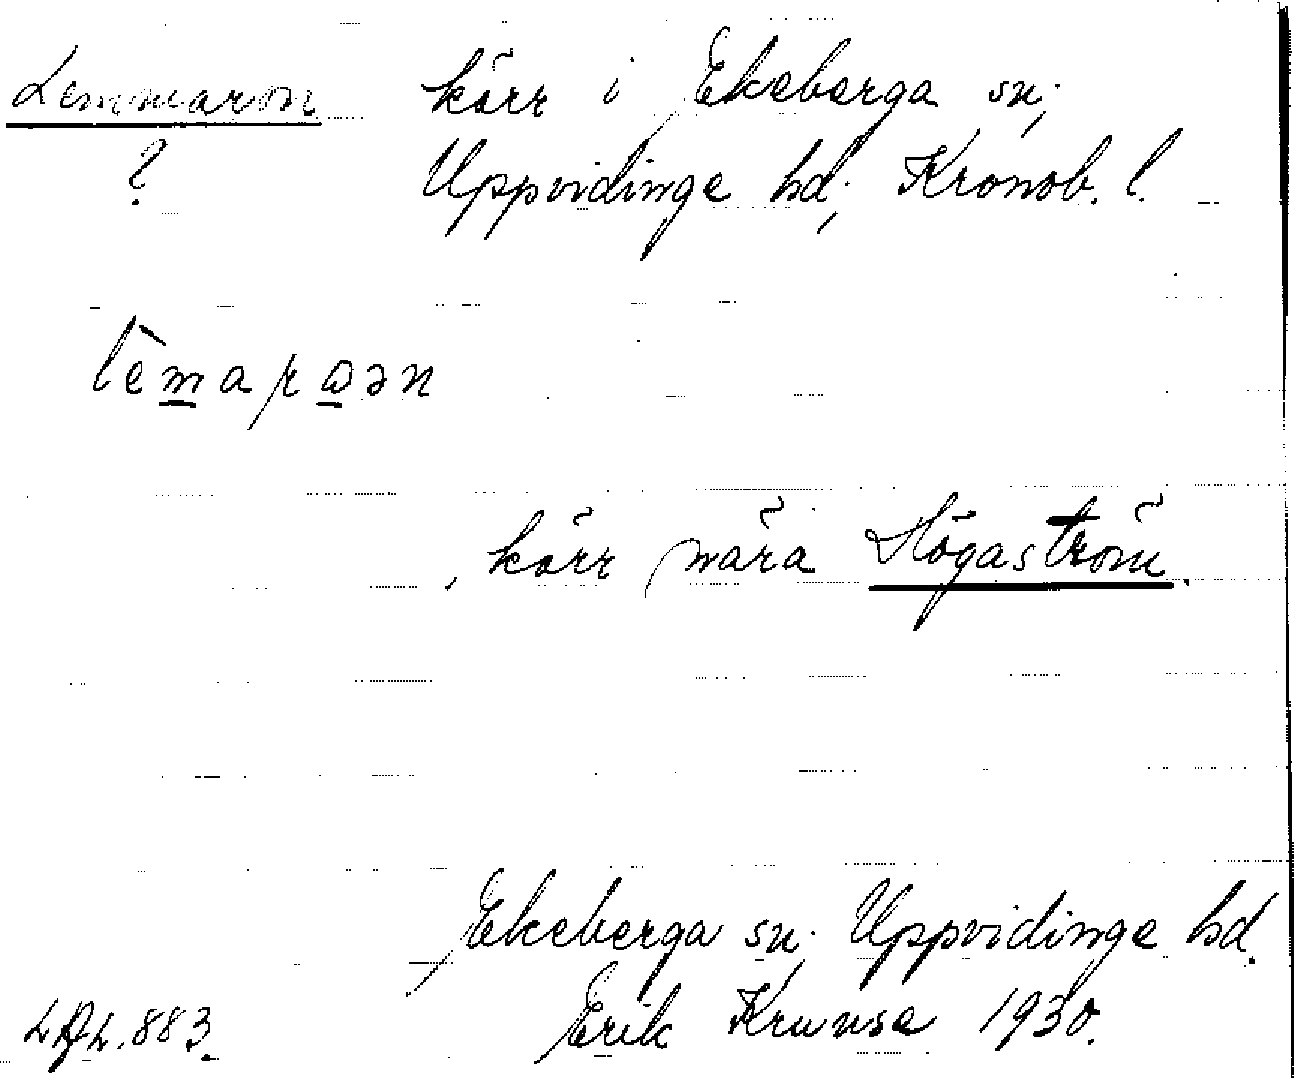 Lemmaron kärr i Ekeberga sn;
? Uppvidinge hd; Kronob. l.
, kärr nära Högaström.
Ekeberga sn. Uppvidinge hd.
883. Erik Krunse 1930.